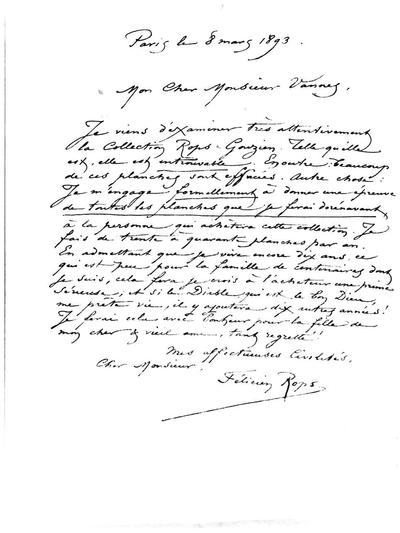 Paris le 8 mars 1893.
Mon Cher Monsieur Vannes,
Je viens d'examiner très attentivement
la Collection Rops-Gouzien. Telle qu'elle
est, elle est introuvable. En outre beaucoup
de ces planches sont effacées. Autre chose:
Je m'engage formellement à donner une épreuve
de toutes les planches que je ferai dorénavant
à la personne qui achètera cette collection. Je
fais de trente à quarante planches par an.
En admettant que je vive encore dix ans, ce
qui est peu pour la famille de centenaires dont
je suis, cela fera je crois à l'acheteur une prime
sérieuse; et si le Diable qui est le bon Dieu,
me prête vie, il y ajoutera dix autres années!
Je ferai cela avec bonheur pour la fille de
mon cher & vieil ami, tant regretté!
Mes affectueuses Civilités,
Cher Monsieur!
Félicien Rops